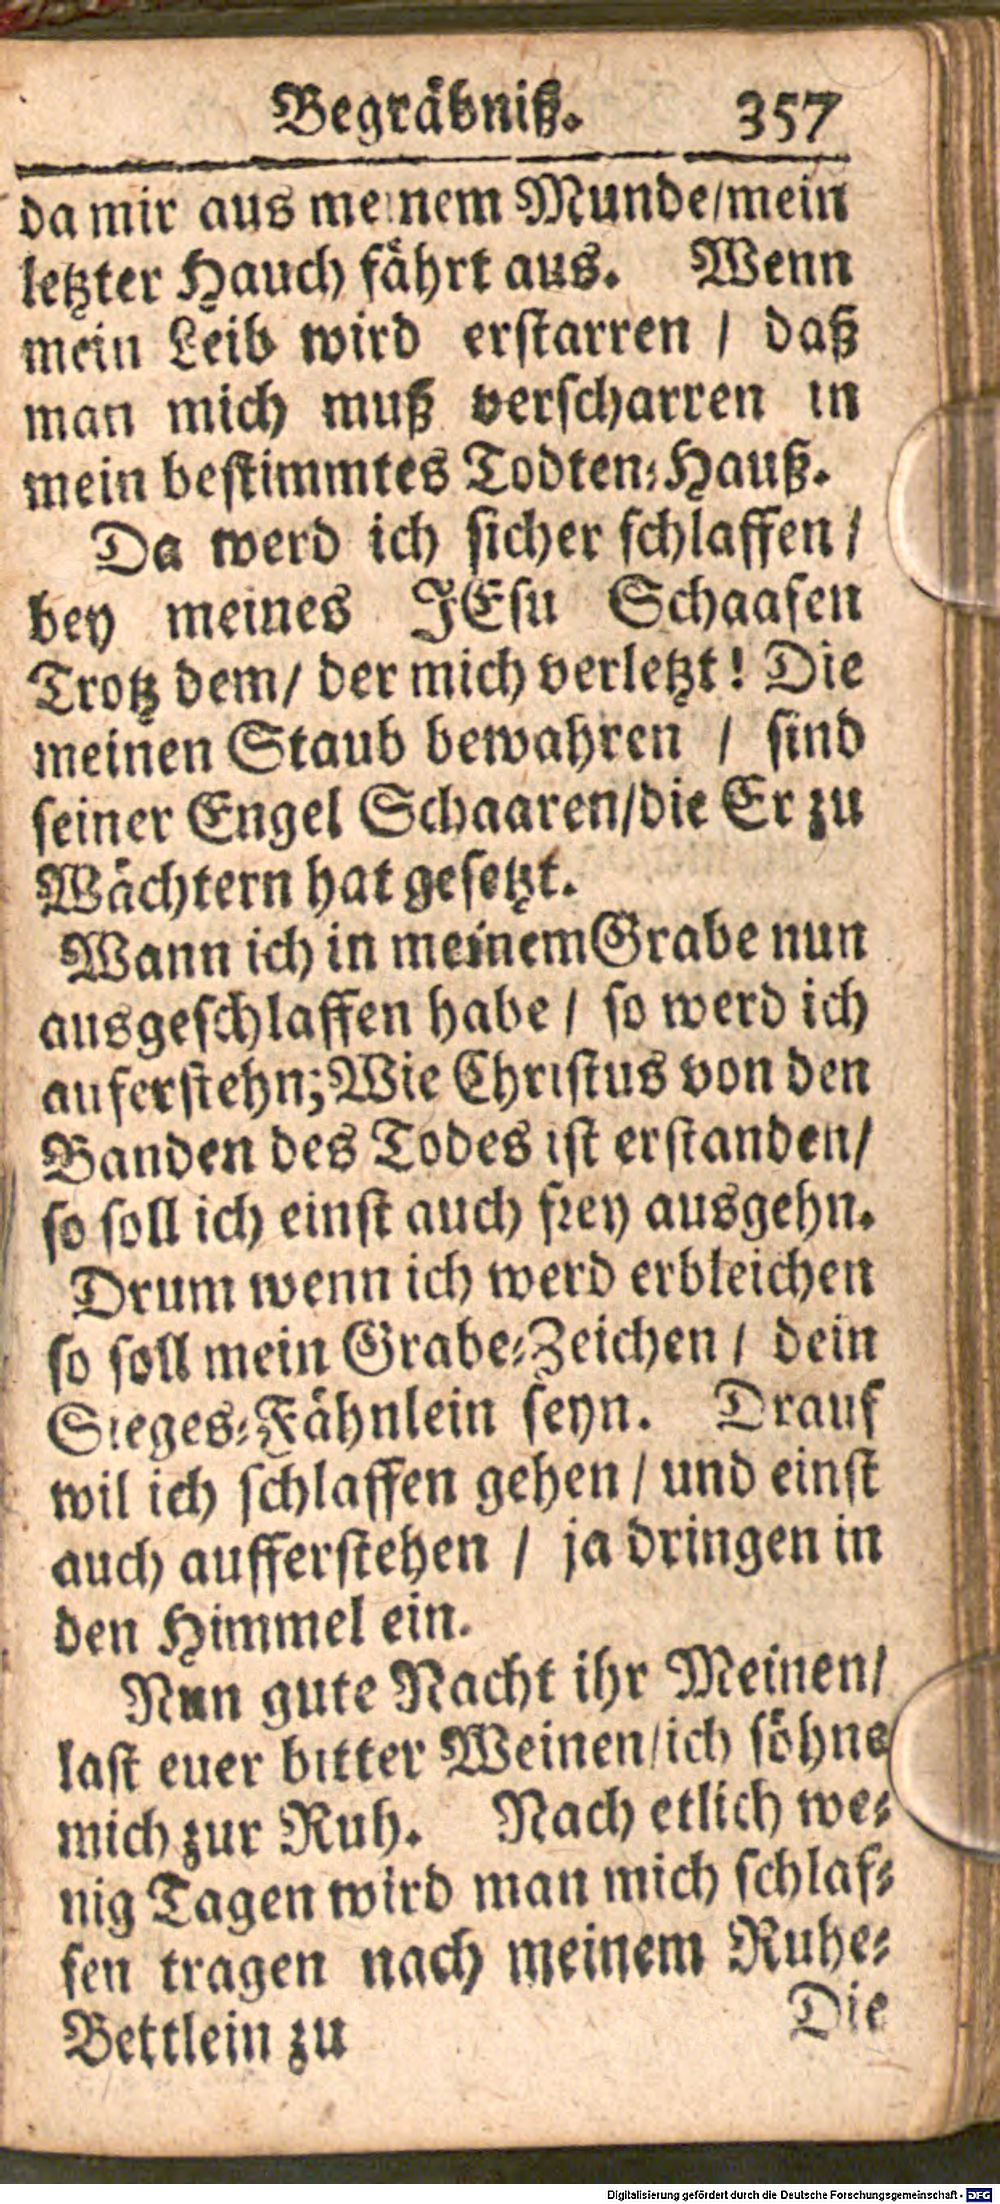 Begräbniß. 357
da mir aus meinem Munde/mein
letzter Hauch fährt aus. Wenn
mein Leib wird erstarren / daß
man mich muß verscharren in
mein bestimmtes Todten-Hauß.
Da werd ich sicher schlaffen /
bey meines JEsu Schaafen
Trotz dem/ der mich verletzt! Die
meinen Staub bewahren / sind
seiner Engel Schaaren/die Er zu
Wächtern hat gesetzt.
Wann ich in meinem Grabe nun
ausgeschlaffen habe / so werd ich
auferstehn; Wie Christus von den
Banden des Todes ist erstanden/
so soll ich einst auch frey ausgehn.
Drum wenn ich werd erbleichen
so soll mein Grabe-Zeichen / dein
Sieges-Fähnlein seyn. Drauf
wil ich schlaffen gehen / und einst
auch aufferstehen / ja dringen in
den Himmel ein.
Nun gute Nacht ihr Meinen/
last euer bitter Weinen/ich söhne
mich zur Ruh. Nach etlich we-
nig Tagen wird man mich schlaf-
fen tragen nach meinem Ruhe-
Bettlein zu Die
Digitalisierung gefördert durch die Deutsche Forschungsgemeinschaft - DFG